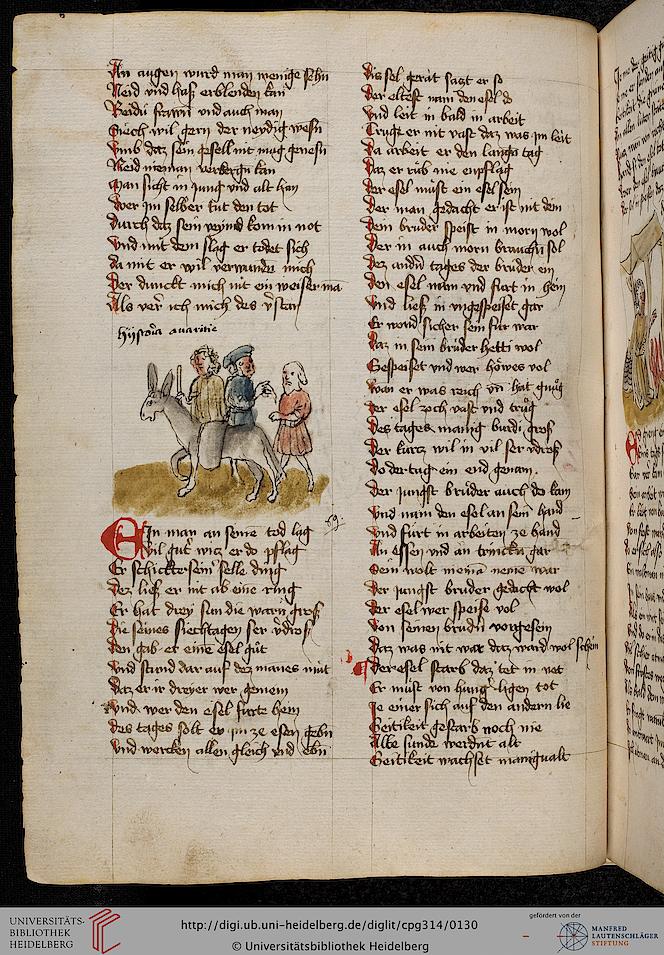 An augen wurd man wenige sehn
Neid vnd haß erblenden kan
Baidu frawn vnd auch man
Siech wil gern der neydig wesn
Vmb daz sein gesell nit mug genesn
Neid nieman verbergn kan
Man sicht in jung vnd alt han
Wer im selber tut den tot
Durch daz sein veyind kom in not
Vnd mit dem slag er tödet sich
Da mit er wil verwunden mich
Der dunckt mich nit ein weiser ma
Als verr ich mich des vstan
hystoria auaritie
EIn man an seine tod lag
Vil gut witz er do pflag
Er schickte sein selle ding
Dez ließ er nit ab eine ring
Er hat drey sun die warn groß
Die seines siechtagen ser vdroß
Den gab er eine esel gut
Vnd stund dar auf dez manes mut
Daz er ir dreyer wer gemein
Vnd wer den esel furte hein
Des tages solt er im ze essen gebn
Vnd wercken allen gleich vnd ebn
59
diß sel gerät sagt er so
Der eltest nam den esel do
Vnd leit in bald in arbeit
Trugt er nit vast daz was im leit
Da arbeit er den langn tag
Daz er rub nie enpflag
Der esel must ein esel sein
Der man gedacht er ist nit dein
Dein bruder speist in morn wol
Der in auch morn brauchn sol
Dez andn tages der bruder ein
Den esel nam vnd furt in hein
Vnd ließ in vngespeiset gar
Er wond sicher sein fur war
Daz in sein bruder hetti wol
Gespeiset vnd wer höwes vol
Wan er was reich vn hat gnug
Der esel zoch vast vnd trug
Des tages manig burdi groß
Der kurtz wil in vil ser vdroß
Do der tag ein end genam
Der jungst bruder auch do kam
Vnd nam den esel an sein hand
Vnd furt in arbeiten ze hand
An essen vnd an trincken gar
Sein wolt meina neme war
Der jungst bruder gedacht wol
Der esel wer speise vol
Von seinen brudn vorgesein
Daz was nit war daz ward wol schein
Der esel starb daz tet in not
Er must von hungr ligen tot
Je einer sich auf den andern lie
Geitikeit gestarb noch nie
Alle sunde werdnt alt
Geitikeit wachset manigualt
UNIVERSITÄTS-
BIBLIOTHEK
HEIDELBERG
http://digi.ub.uni-heidelberg.de/diglit/cpg314/0130
© Universitätsbibliothek Heidelberg
gefördert von der
MANFRED
LAUTENSCHLÄGER
STIFTUNG